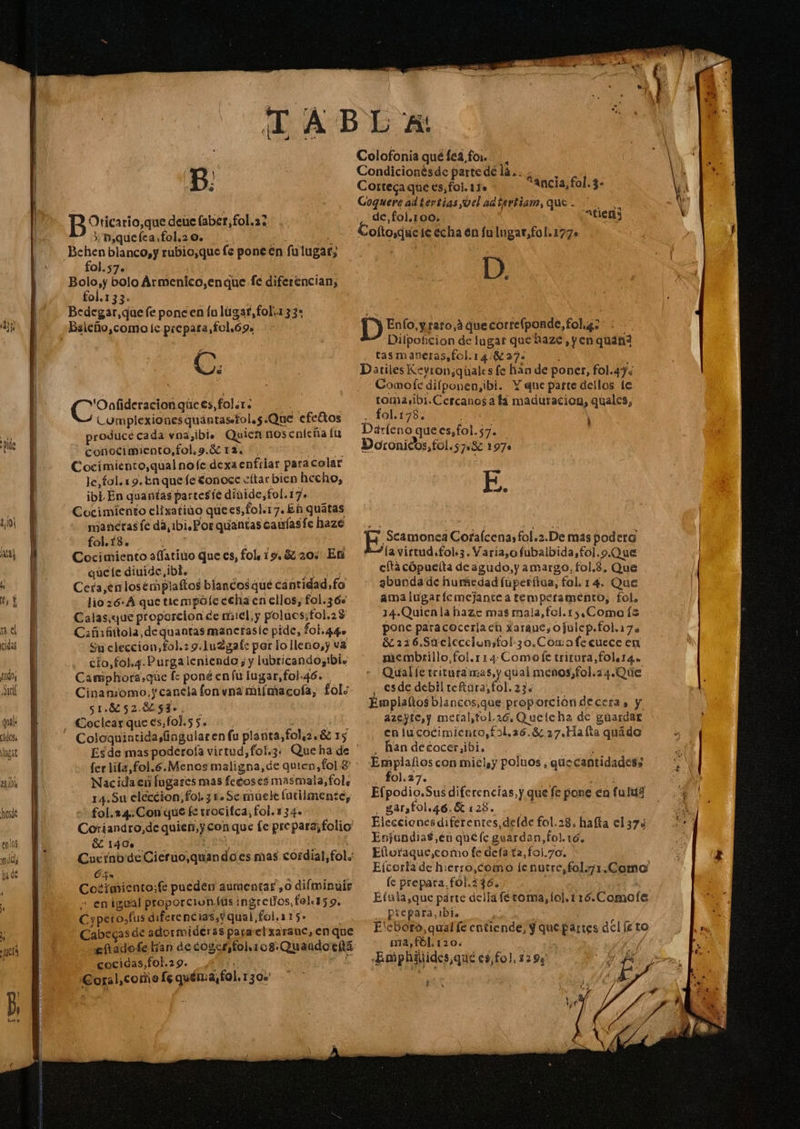 TABLA.
B.
BOticario,que deue saber,fol.2
B, n,que sea.fol.20.
Behen blanco,y rubio,que se ponen su lugar,
fol.57.
Bolo,y bolo Armenico,en que se diferencian,
fol.133.
Bedegar,que se pone en su lugar,fol.133.
Baleño,como se prepara,fol.69.
C.
COnsideracion que es,fol.1.
Complexiones quantas,fol.5.Que efectos
produce cada vna,ibi. Quien nos enseña su
conocimiento,fol.9.& 12.
Cocimiento,qual no se dexa enfriar para colar
le,fol.19.En que se conoce estar bien hecho,
ibi.En quantas partes se diuide,fol.17.
Cocimiento elixatiuo que es,fol.17.En quātas
maneras se da,ibi.Por quantas causas se haze
fol.18.
Cocimiento assatiuo que es, fol. 19. & 20. En
que se diuide,ibi.
Cera,en los emplastos blancos que cantidad,fo
lio 26.A que tiempo se echa en ellos, fol.36.
Calas,que proporcion de miel,y poluos,fol.28
Cañafistola,de quantas maneras se pide, fol.44.
Su eleccion,fol.29.Iuzgase por lo lleno,y va
cio,fol.4.Purga leniendo, y lubricando,ibi.
Camphora,que se pone en su lugar,fol.46.
Cinamomo,y canela son vna misma cosa, fol.
51.& 52.& 53.
Coclear que es,fol.55.
Coloquintida,singular en su planta,fol.2.& 15
Es de mas poderosa virtud,fol.3. Que ha de
ser lisa,fol.6.Menos maligna,de quien,fol.8
Nacida en lugares mas secos es mas mala,fol.
14.Su eleccion,fol.31.Se muele sutilmente,
fol.24.Con que se trocisca, fol.134.
Coriandro,de quien,y con que se prepara,folio
& 140.
Cuerno de Cieruo,quando es mas cordial,fol.
64.
Cozimiento,se pueden aumentar,o disminuir
en igual proporcion sus ingresos,fol.159.
Cypero,sus diferencias,y qual,fol.115.
Cabeças de adormideras para el xaraue, en que
estado se han de coger,fol.108.Quando està
cocidas,fol.29.
Coral,como se quema,fol.130.
Colofonia què sea,fol.
Condiciones de parte de la
ancia,fol.3.
Corteça que es,fol.11.
Coquere ad tertias,vel ad tertiam, que
de,fol.100.
Costo,que se echa en su lugar,fol.177.
D.
DEnso,y raro,à que corresponde,fol.4.
Disposicion de lugar que haze, y en quantas maneras,fol.14.& 27.
Datiles Keyron,quales se han de poner, fol.47.
Como se disponen,ibi. Y que parte dellos se
toma,ibi.Cercanos a la maduracion, quales,
fol.178.
Darseno que es,fol.57.
Doronicos,fol.57.& 197.
E.
EScamonea Corascena,fol.2.De mas podero
sa virtud,fol.3.Varia,o subalbida,fol.9.Que
està cōpuesta de agudo,y amargo,fol.8. Que
abunda de humedad superflua, fol.14. Que
ama lugar semejante a temperamento, fol.
14.Quien la haze mas mala,fol.15.Como se
pone para cocerla en xaraue,o julep.fol.17.
& 226.Su eleccion,fol.30.Como se cuece en
membrillo,fol.114.Como se tritura,fol.14.
Qual se tritura mas,y qual menos,fol.24.Que
es de debil textura,fol.23.
Emplastos blancos,que proporcion de cera, y
azeyte,y metal,fol.26.Que se ha de guardar
en su cocimiento,fol.26.& 27.Hasta quādo
han de cocer,ibi.
Emplastos con miel,y poluos, que cantidades
fol.27.
Espodio.Sus diferencias,y que se pone en su lugar,fol.46.& 128.
Elecciones diferentes,desde fol.28. hasta el 37.
Enjundias,en que se guardan,fol.16.
Estoraque,como se desata,fol.70.
Escoria de hierro,como se nutre,fol.71.Como
se prepara,fol.136.
Esula,que parte della se toma,fol.116.Como se
prepara,ibi.
Eleboro,qual se entiende, y que partes del se to
ma,fol.120.
Emphilides,que es,fol.129.